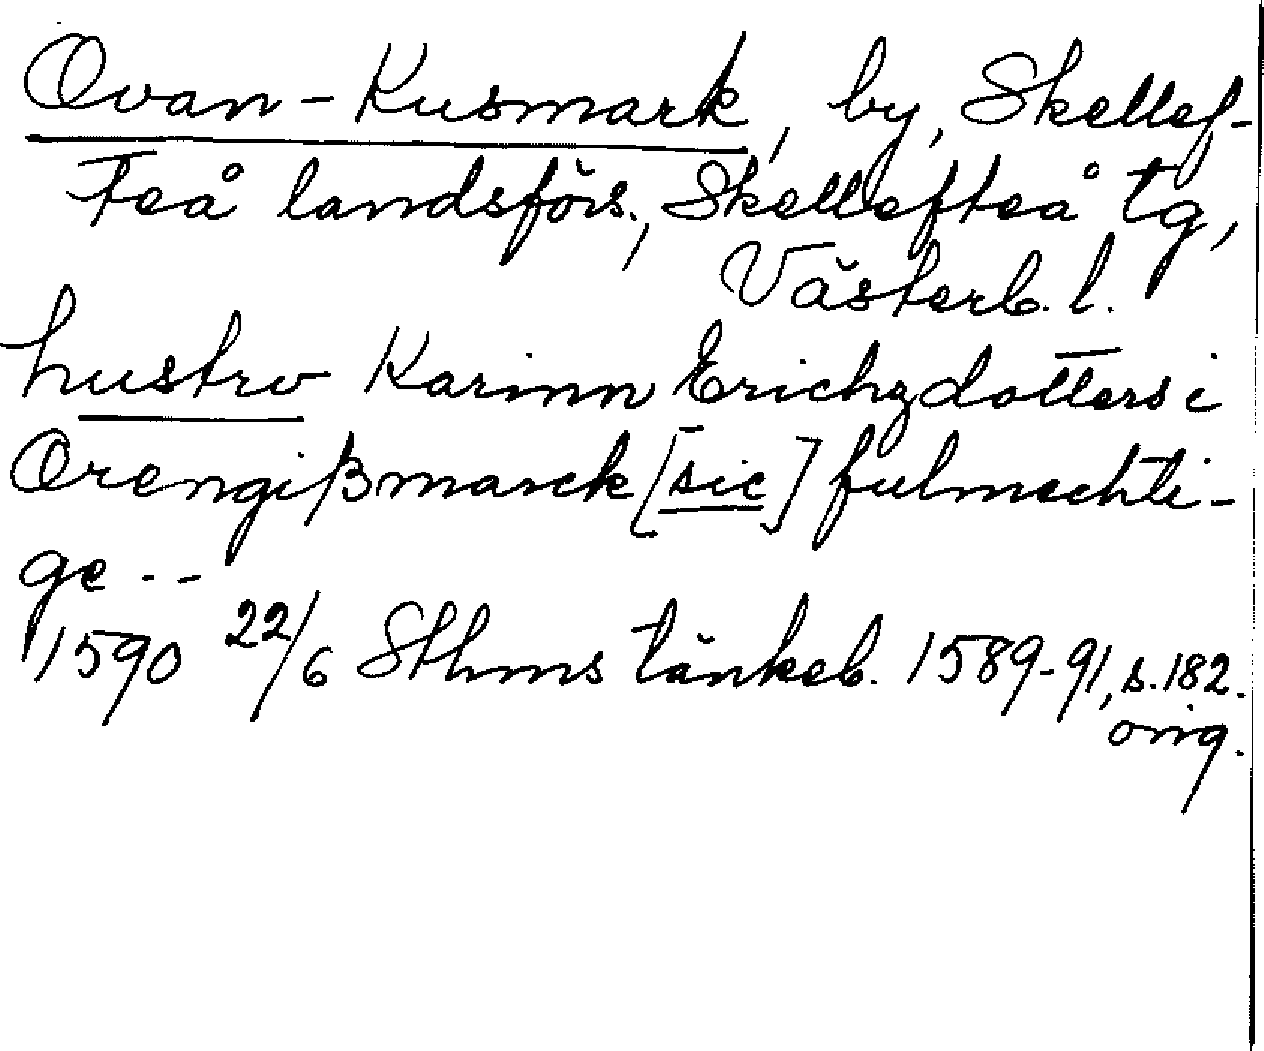 Ovan-Kusmark, by, Skellef-
teå landsförs., Skellefteå tg,
Västerb. l.
hustrv Karinn Erichzdotters i
Orengißmarck [sic] fulmechti-
ge --
1590 22/6 Sthms tänkeb. 1589-91, s. 182.
orig.